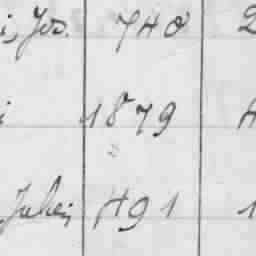 i, Jos. 740 2
i 1879 4
Juhei 491 1